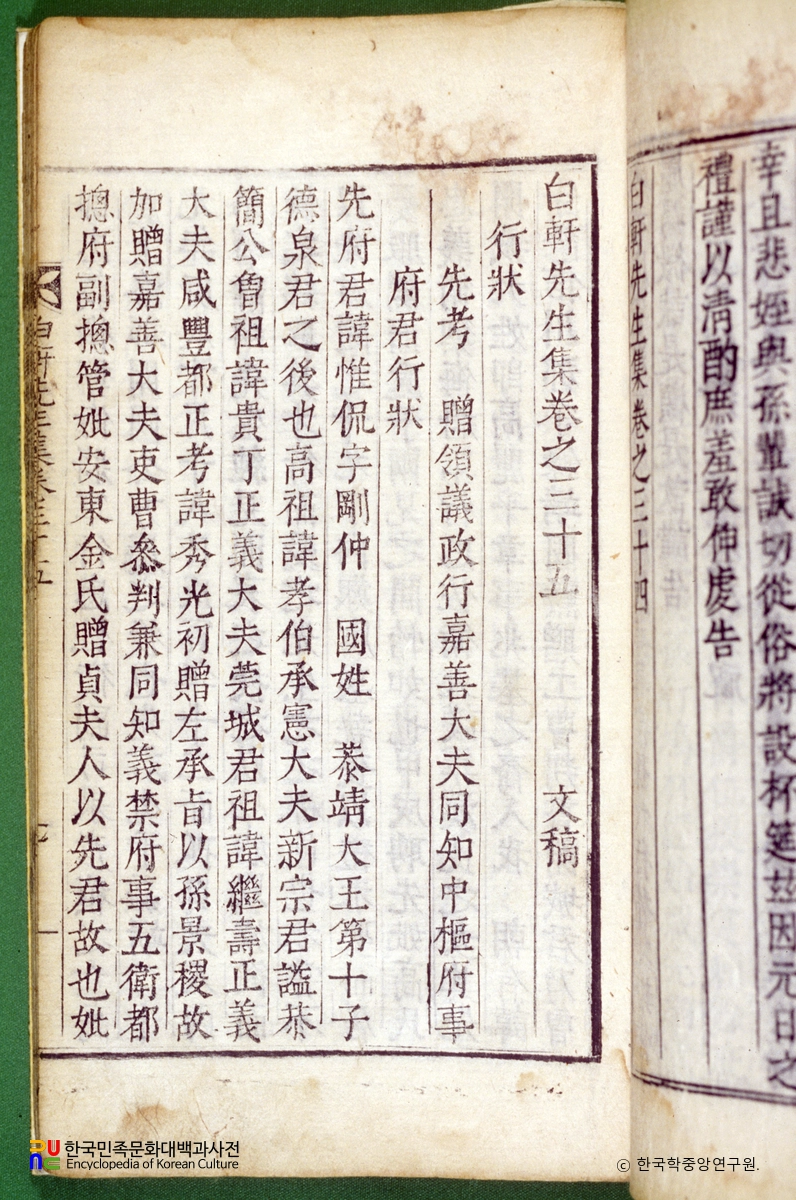 幸且悲姪與孫輩誠切從俗將設杯筵玆因元日之
禮謹以淸酌庶羞敢伸虔告
白軒先生集卷之三十四
白軒先生集卷之三十五 文稿
行狀
先考 贈領議政行嘉善大夫同知中樞府事
府君行狀
先府君諱惟侃字剛仲 國姓 恭靖大王第十子
德泉君之後也高祖諱孝伯承憲大夫新宗君謚恭
簡公曾祖諱貴丁正義大夫莞城君祖諱繼壽正義
大夫咸豐都正考諱秀光初贈左承旨以孫景稷故
加贈嘉善大夫吏曹叅判兼同知義禁府事五衛都
摠府副摠管妣安東金氏贈貞夫人以先君故也妣
白軒先生集卷三十五
一
한국민족문화대백과사전
Encyclopedia of Korean Culture
ⓒ 한국학중앙연구원.